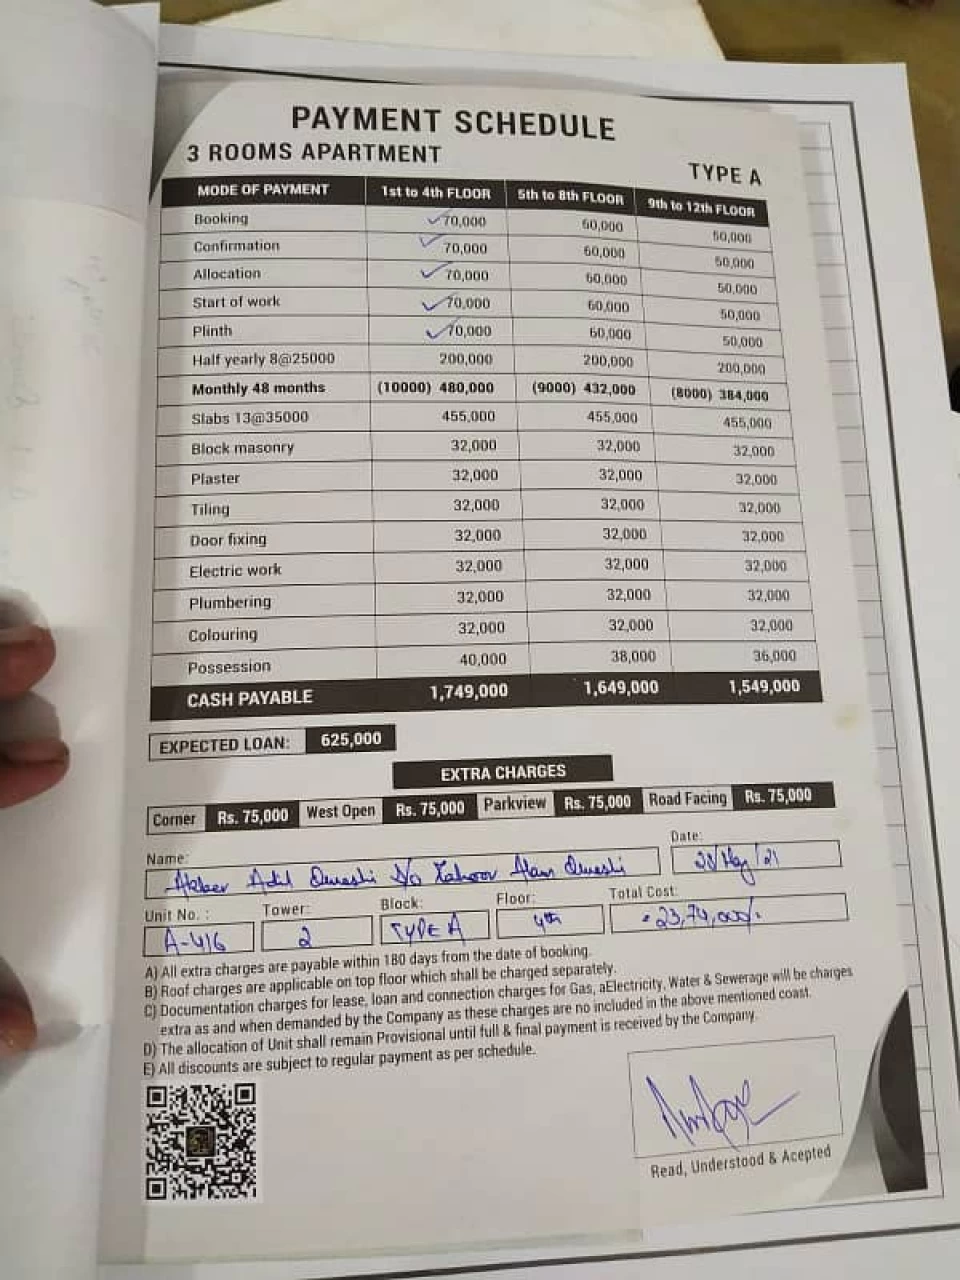 PAYMENT SCHEDULE
3 ROOMS APARTMENT
TYPE A
MODE OF PAYMENT 1st to 4th FLOOR 5th to 8th FLOOR 9th to 12th FLOOR
Booking 70,000 60,000 50,000
Confirmation 70,000 60,000 50,000
Allocation 70,000 60,000 50,000
Start of work 70,000 60,000 50,000
Plinth 70,000 60,000 50,000
Half yearly 8@25000 200,000 200,000 200,000
Monthly 48 months (10000) 480,000 (9000) 432,000 (8000) 384,000
Slabs 13@35000 455,000 455,000 455,000
Block masonry 32,000 32,000 32,000
Plaster 32,000 32,000 32,000
Tiling 32,000 32,000 32,000
Door fixing 32,000 32,000 32,000
Electric work 32,000 32,000 32,000
Plumbering 32,000 32,000 32,000
Colouring 32,000 32,000 32,000
Possession 40,000 38,000 36,000
CASH PAYABLE 1,749,000 1,649,000 1,549,000
EXPECTED LOAN: 625,000
EXTRA CHARGES
Corner Rs. 75,000 West Open Rs. 75,000 Parkview Rs. 75,000 Road Facing Rs. 75,000
Name: Date:
Adil S/o Alam 28/May/21
Unit No. : Tower: Block: Floor: Total Cost:
A-416 2 TYPE A 4th 23,74,000/-
A) All extra charges are payable within 180 days from the date of booking.
B) Roof charges are applicable on top floor which shall be charged separately.
C) Documentation charges for lease, loan and connection charges for Gas, aElectricity, Water & Sewerage will be charges
extra as and when demanded by the Company as these charges are no included in the above mentioned coast.
D) The allocation of Unit shall remain Provisional until full & final payment is received by the Company.
E) All discounts are subject to regular payment as per schedule.
Read, Understood & Acepted